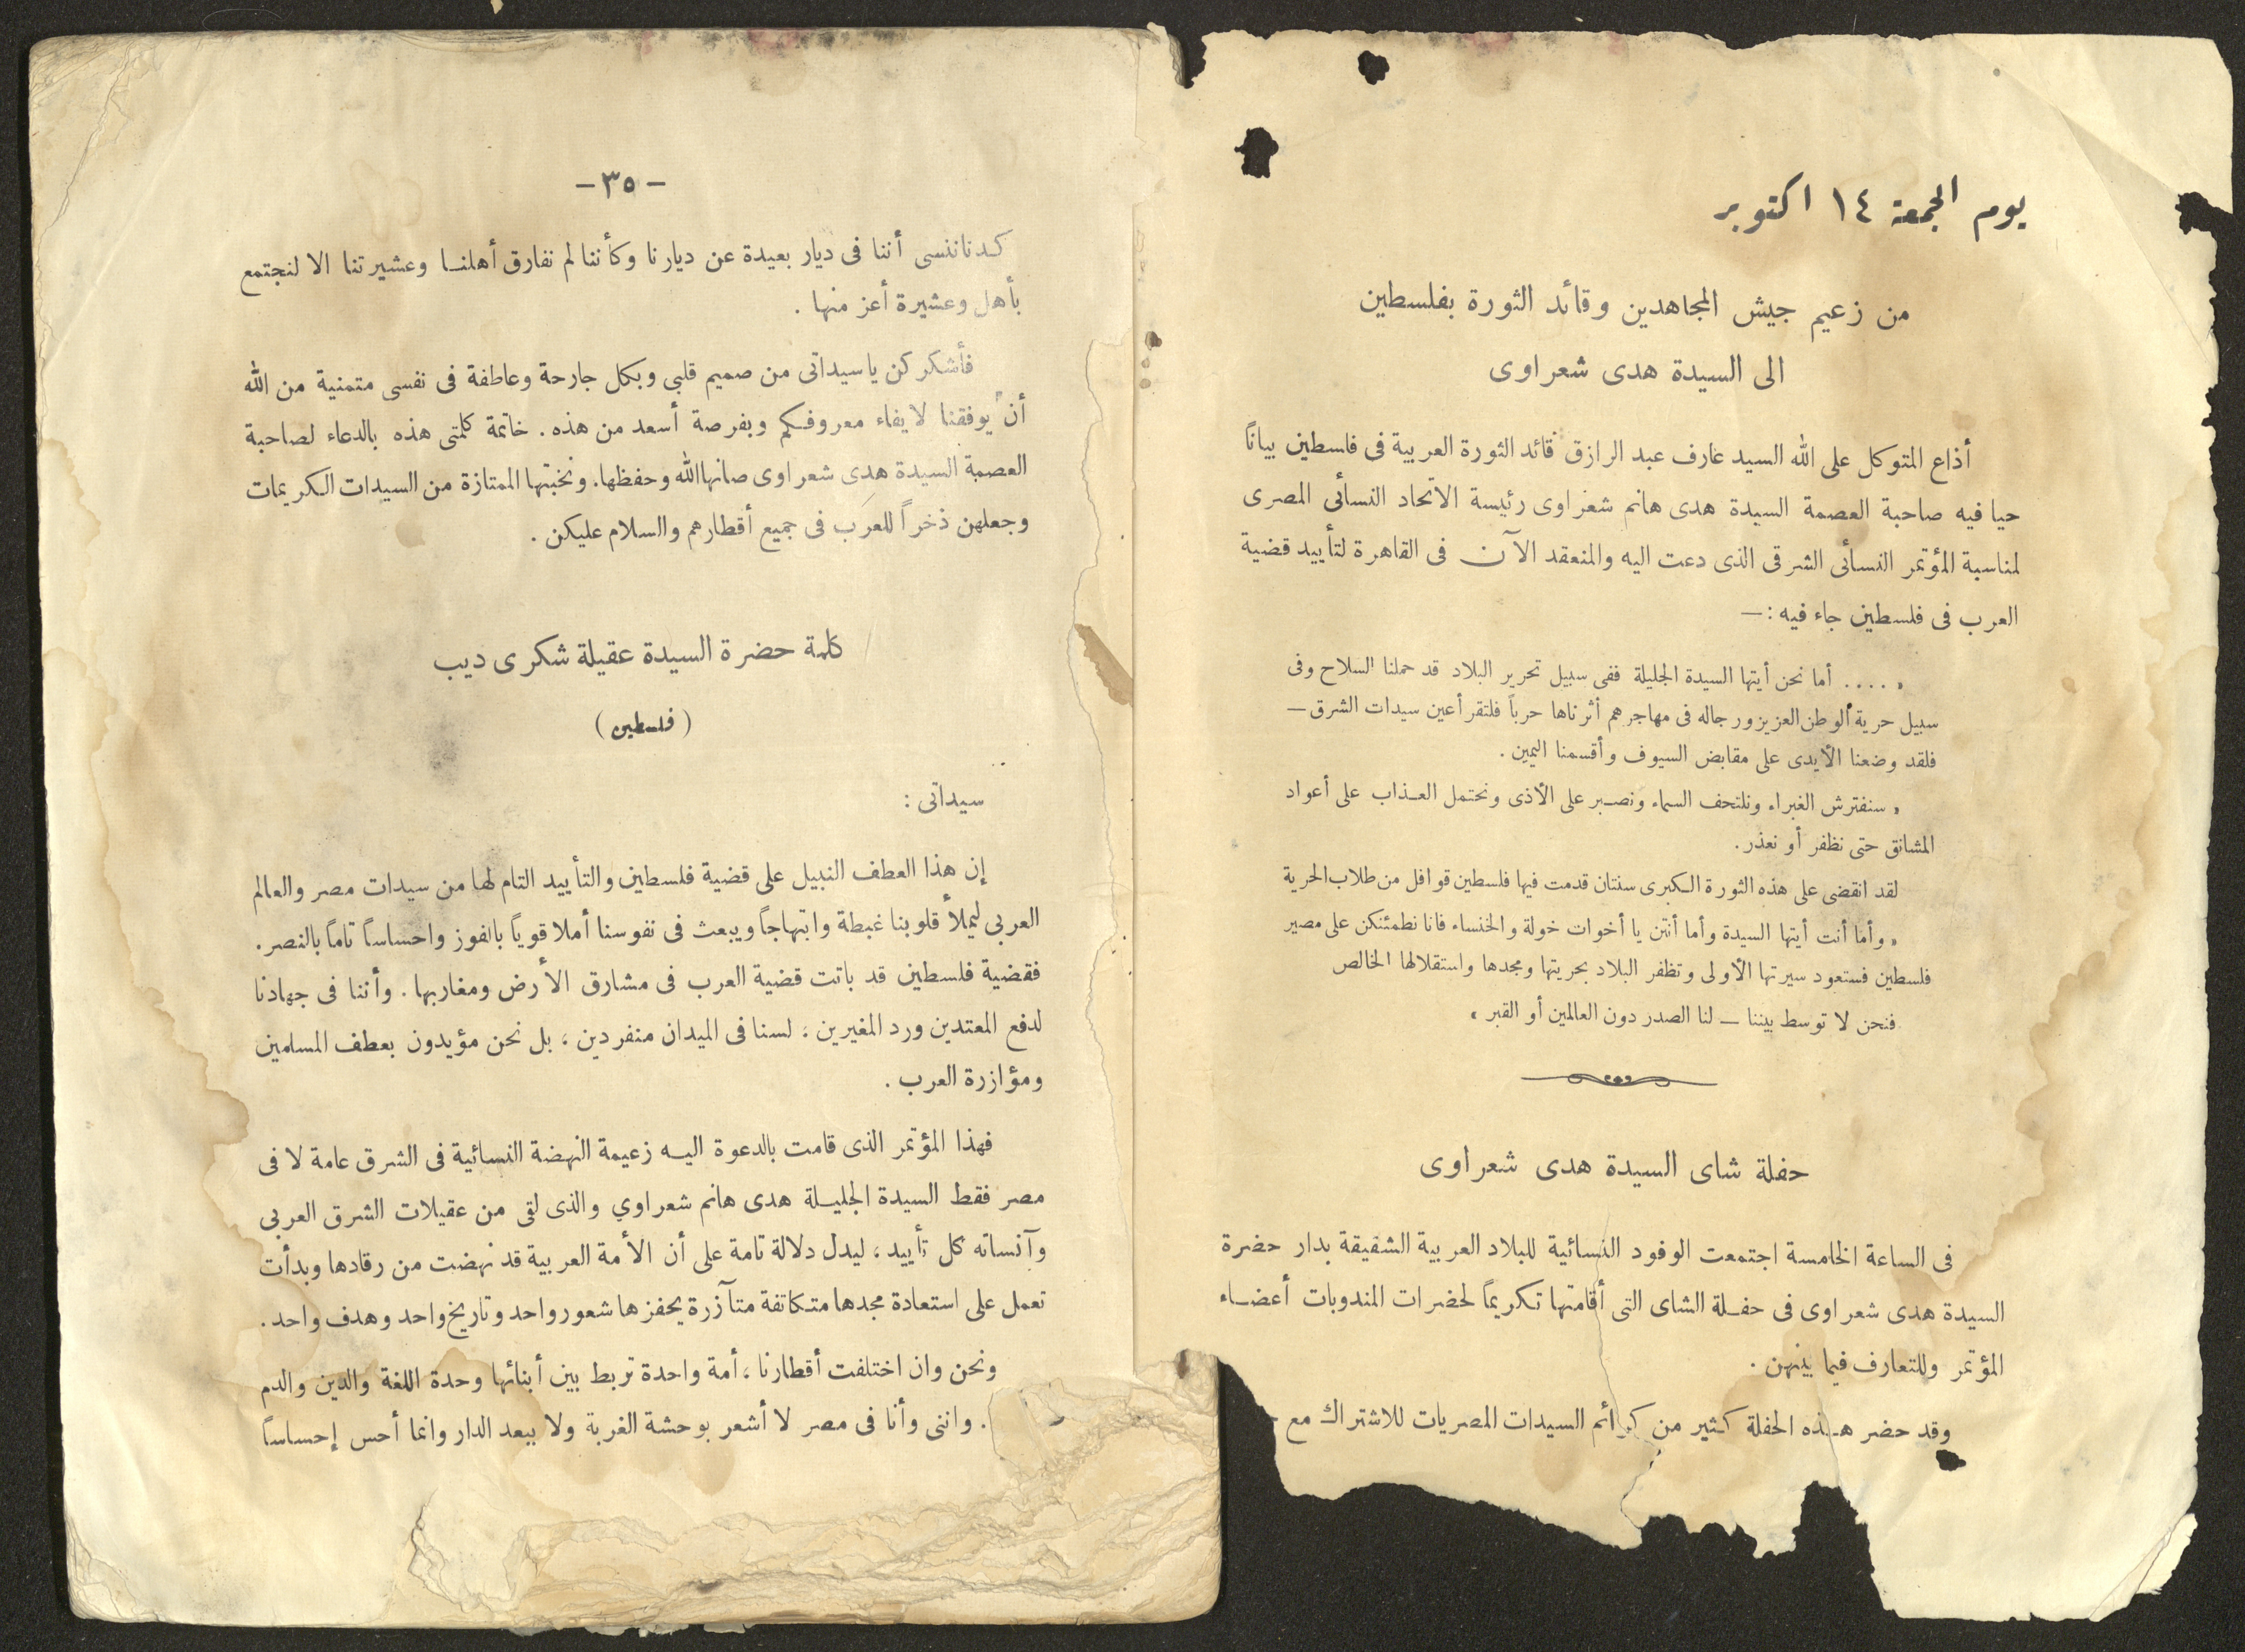 يوم الجمعة ١٤ اكتوبر
من زعيم جيش المجاهدين وقائد الثورة بفلسطين
الى السيدة هدى شعراوى
أذاع المتوكل على الله السيد عارف عبد الرازق قائد الثورة العربية فى فلسطين بياناً
حيا فيه صاحبة العصمة السيدة هدى هانم شعراوى رئيسة الاتحاد النسائى المصرى
لمناسبة المؤتمر النسائى الشرقى الذى دعت اليه والمنعقد الآن فى القاهرة لتأييد قضية
العرب فى فلسطين جاء فيه : —
« .... أما نحن أيتها السيدة الجليلة ففى سبيل تحرير البلاد قد حملنا السلاح وفى
سبيل حرية الوطن العزيز ورجاله فى مهاجرهم أثرناها حرباً فلتقر أعين سيدات الشرق —
فلقد وضعنا الأيدى على مقابض السيوف وأقسمنا اليمين .
« سنفترش الغبراء ونلتحف السماء ونصبر على الأذى ونحتمل العذاب على أعواد
المشانق حتى نظفر أو نعذر .
لقد انقضى على هذه الثورة الكبرى سنتان قدمت فيها فلسطين قوافل من طلاب الحرية
« وأما أنت أيتها السيدة وأما أنتن يا أخوات خولة والخنساء فانا نطمئنكن على مصير
فلسطين فستعود سيرتها الأولى وتظفر البلاد بحريتها ومجدها واستقلالها الخالص
فنحن لا توسط بيننا — لنا الصدر دون العالمين أو القبر »
حفلة شاى السيدة هدى شعراوى
فى الساعة الخامسة اجتمعت الوفود النسائية للبلاد العربية الشقيقة بدار حضرة
السيدة هدى شعراوى فى حفلة الشاى التى أقامتها تكريماً لحضرات المندوبات أعضاء
المؤتمر وللتعارف فيما بينهن .
وقد حضر هذه الحفلة كثير من كرائم السيدات المصريات للاشتراك مع
— ٣٥ —
كدنا ننسى أننا فى ديار بعيدة عن ديارنا وكأننا لم نفارق أهلنا وعشيرتنا الا لنجتمع
بأهل وعشيرة أعز منها .
فأشكركن ياسيداتى من صميم قلبي وبكل جارحة وعاطفة فى نفسى متمنية من الله
أن يوفقنا لايفاء معروفكم وبفرصة أسعد من هذه . خاتمة كلمتى هذه بالدعاء لصاحبة
العصمة السيدة هدى شعراوى صانها الله وحفظها . ونخبتها الممتازة من السيدات الكريمات
وجعلهن ذخراً للعرب فى جميع أقطارهم والسلام عليكن .
كلمة حضرة السيدة عقيلة شكرى ديب
( فلسطين )
سيداتى :
إن هذا العطف النبيل على قضية فلسطين والتأييد التام لها من سيدات مصر والعالم
العربي ليملأ قلوبنا غبطة وابتهاجاً ويبعث فى نفوسنا أملا قوياً بالفوز واحساساً تاماً بالنصر .
فقضية فلسطين قد باتت قضية العرب فى مشارق الأرض ومغاربها . وأننا فى جهادنا
لدفع المعتدين ورد المغيرين ، لسنا فى الميدان منفردين ، بل نحن مؤيدون بعطف المسلمين
ومؤازرة العرب .
فهذا المؤتمر الذى قامت بالدعوة اليه زعيمة النهضة النسائية فى الشرق عامة لا فى
مصر فقط السيدة الجليلة هدى هانم شعراوي والذى لقى من عقيلات الشرق العربى
وآنساته كل تأييد ، ليدل دلالة تامة على أن الأمة العربية قد نهضت من رقادها وبدأت
تعمل على استعادة مجدها متكاتفة متآزرة يحفزها شعور واحد وتاريخ واحد وهدف واحد .
ونحن وان اختلفت أقطارنا ، أمة واحدة تربط بين أبنائها وحدة اللغة والدين والدم
. واننى وأنا فى مصر لا أشعر بوحشة الغربة ولا ببعد الدار وانما أحس إحساساً